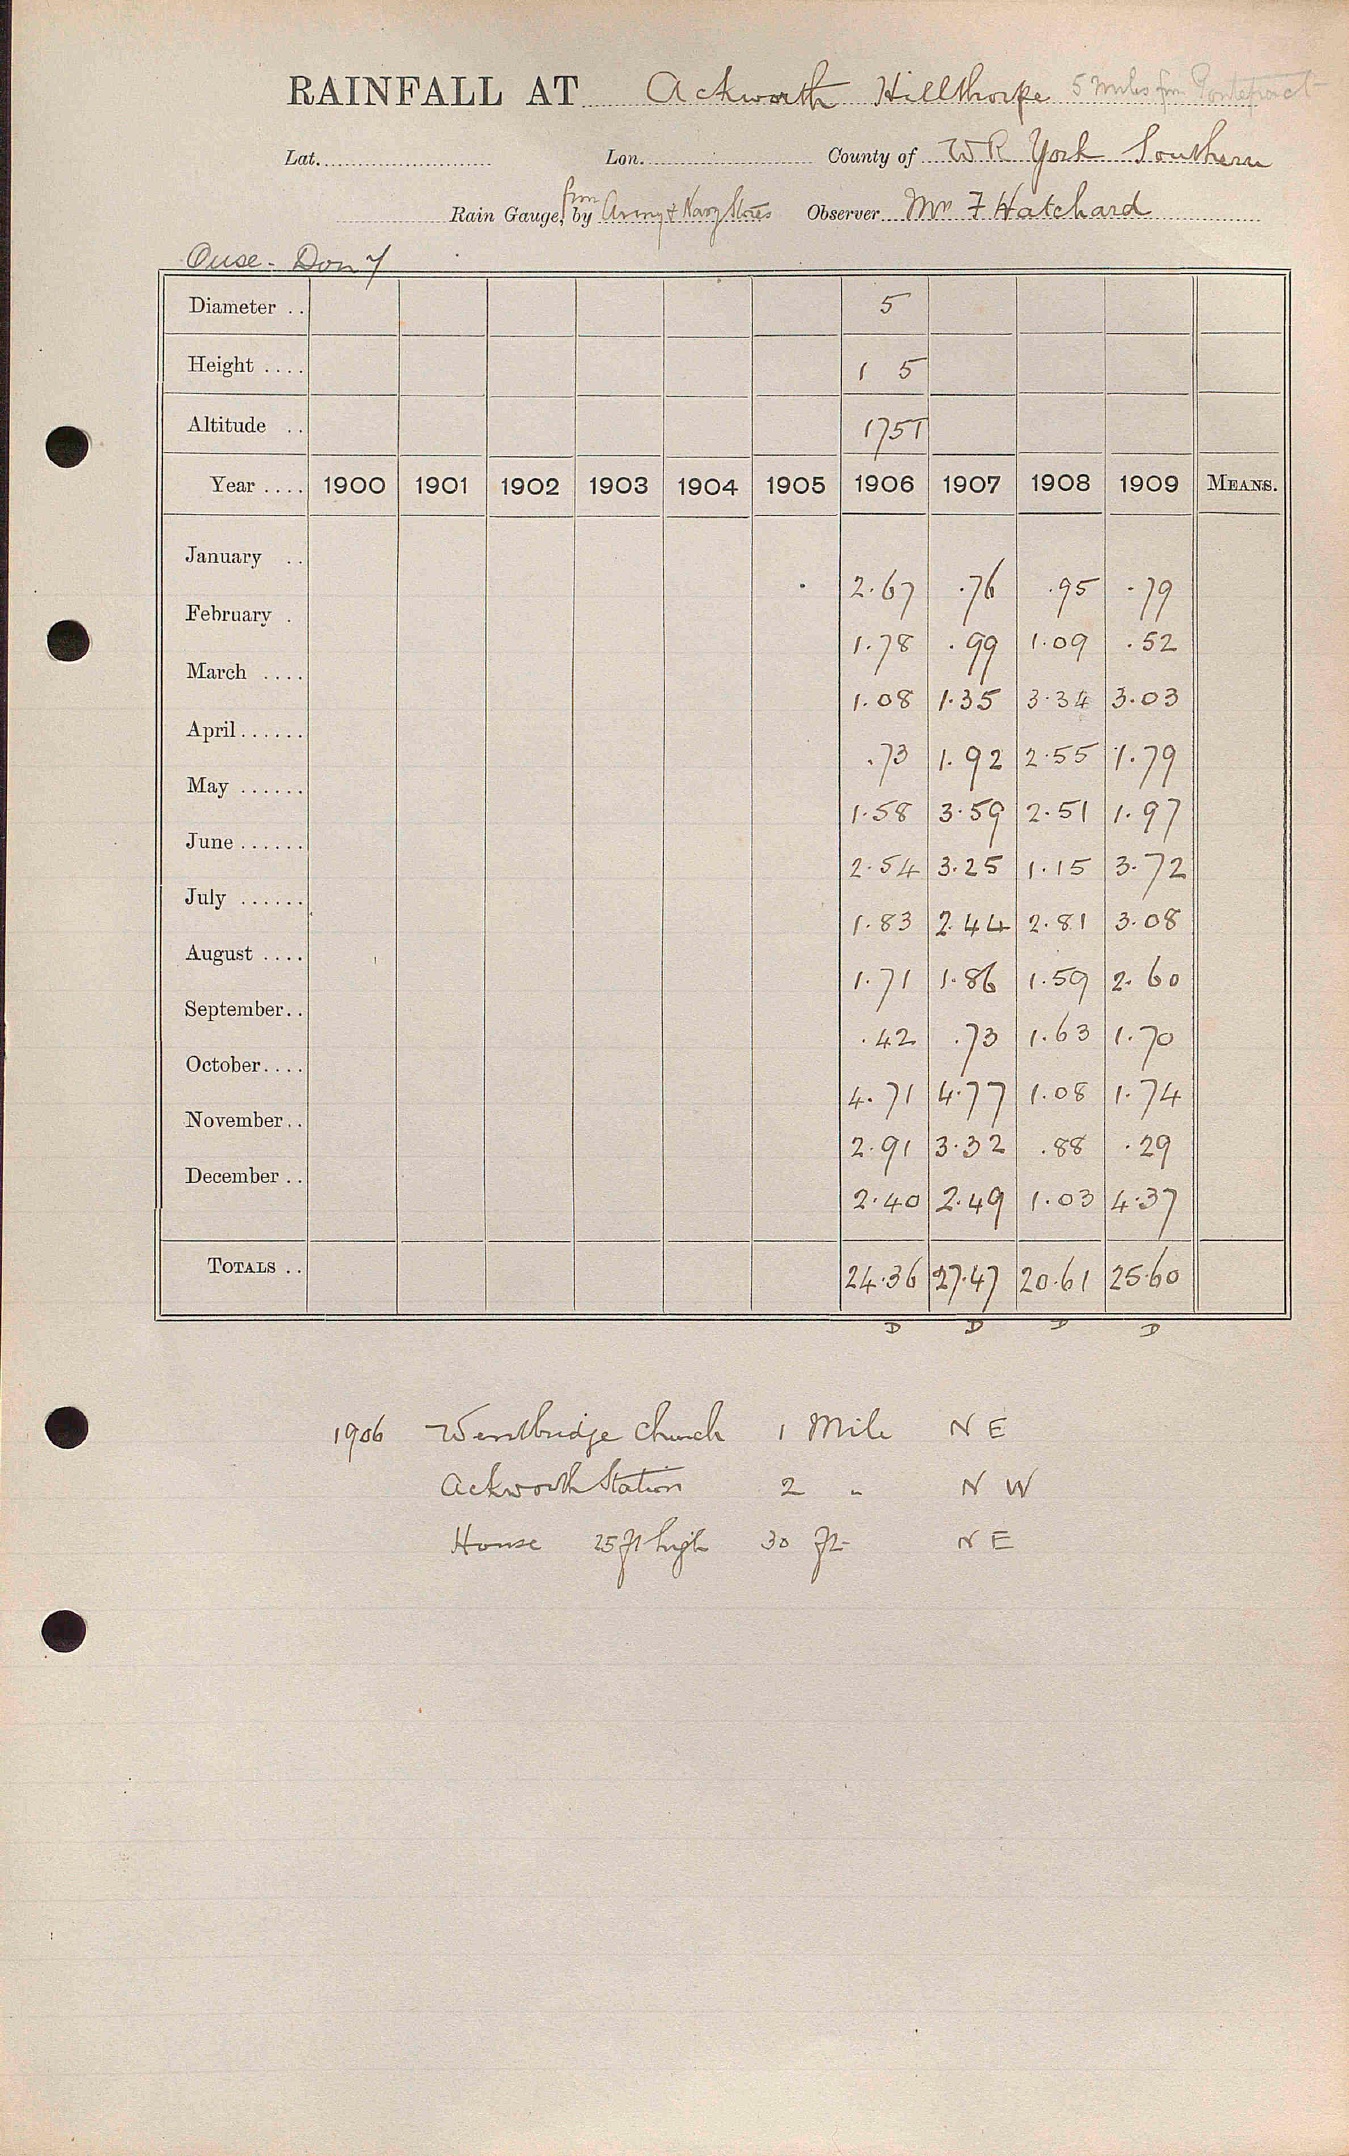 RAINFALL AT Ackworth Hillthorpe 5 miles from Pontefract
Lat. Lon. County of W R York Southern
Rain Gauge, from by Army & Navy Stores Observer Mr F Hatchard
Ouse - Don 7
Diameter .. 5
Height .... 1 5
Altitude .. 175T
Year .... 1900 1901 1902 1903 1904 1905 1906 1907 1908 1909 MEANS.
January .. 2.67 .76 .95 .79
February . 1.78 .99 1.09 .52
March .... 1.08 1.35 3.34 3.03
April...... .73 1.92 2.55 1.79
May ...... 1.58 3.59 2.51 1.97
June ...... 2.54 3.25 1.15 3.72
July ...... 1.83 2.44 2.81 3.08
August .... 1.71 1.86 1.59 2.60
September.. .42 .73 1.63 1.70
October.... 4.71 4.77 1.08 1.74
November.. 2.91 3.32 .88 .29
December .. 2.40 2.49 1.03 4.37
TOTALS .. 24.36 27.47 20.61 25.60
D D D D
1906 Wentbridge Church 1 Mile N E
Ackworth Station 2 " N W
House 25 ft high 30 ft N E